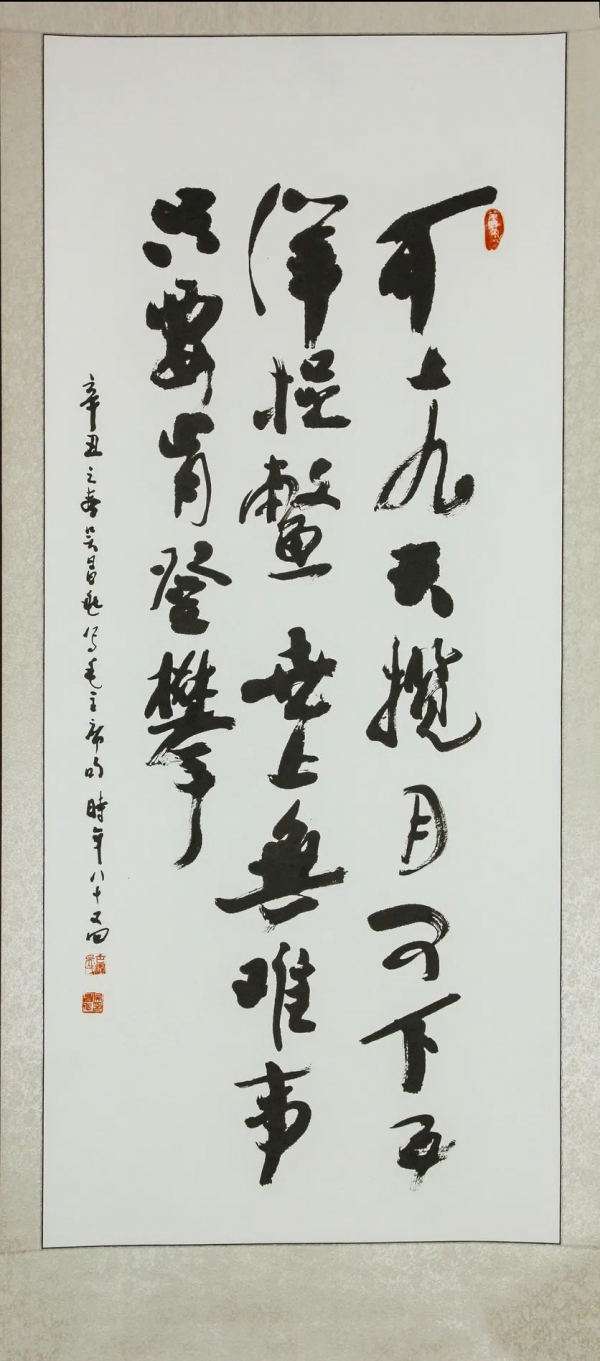 可上九天揽月可下五
洋捉鳖世上無难事
只要肯登攀
辛丑之春吴昌乾写毛主席句時年八十又四